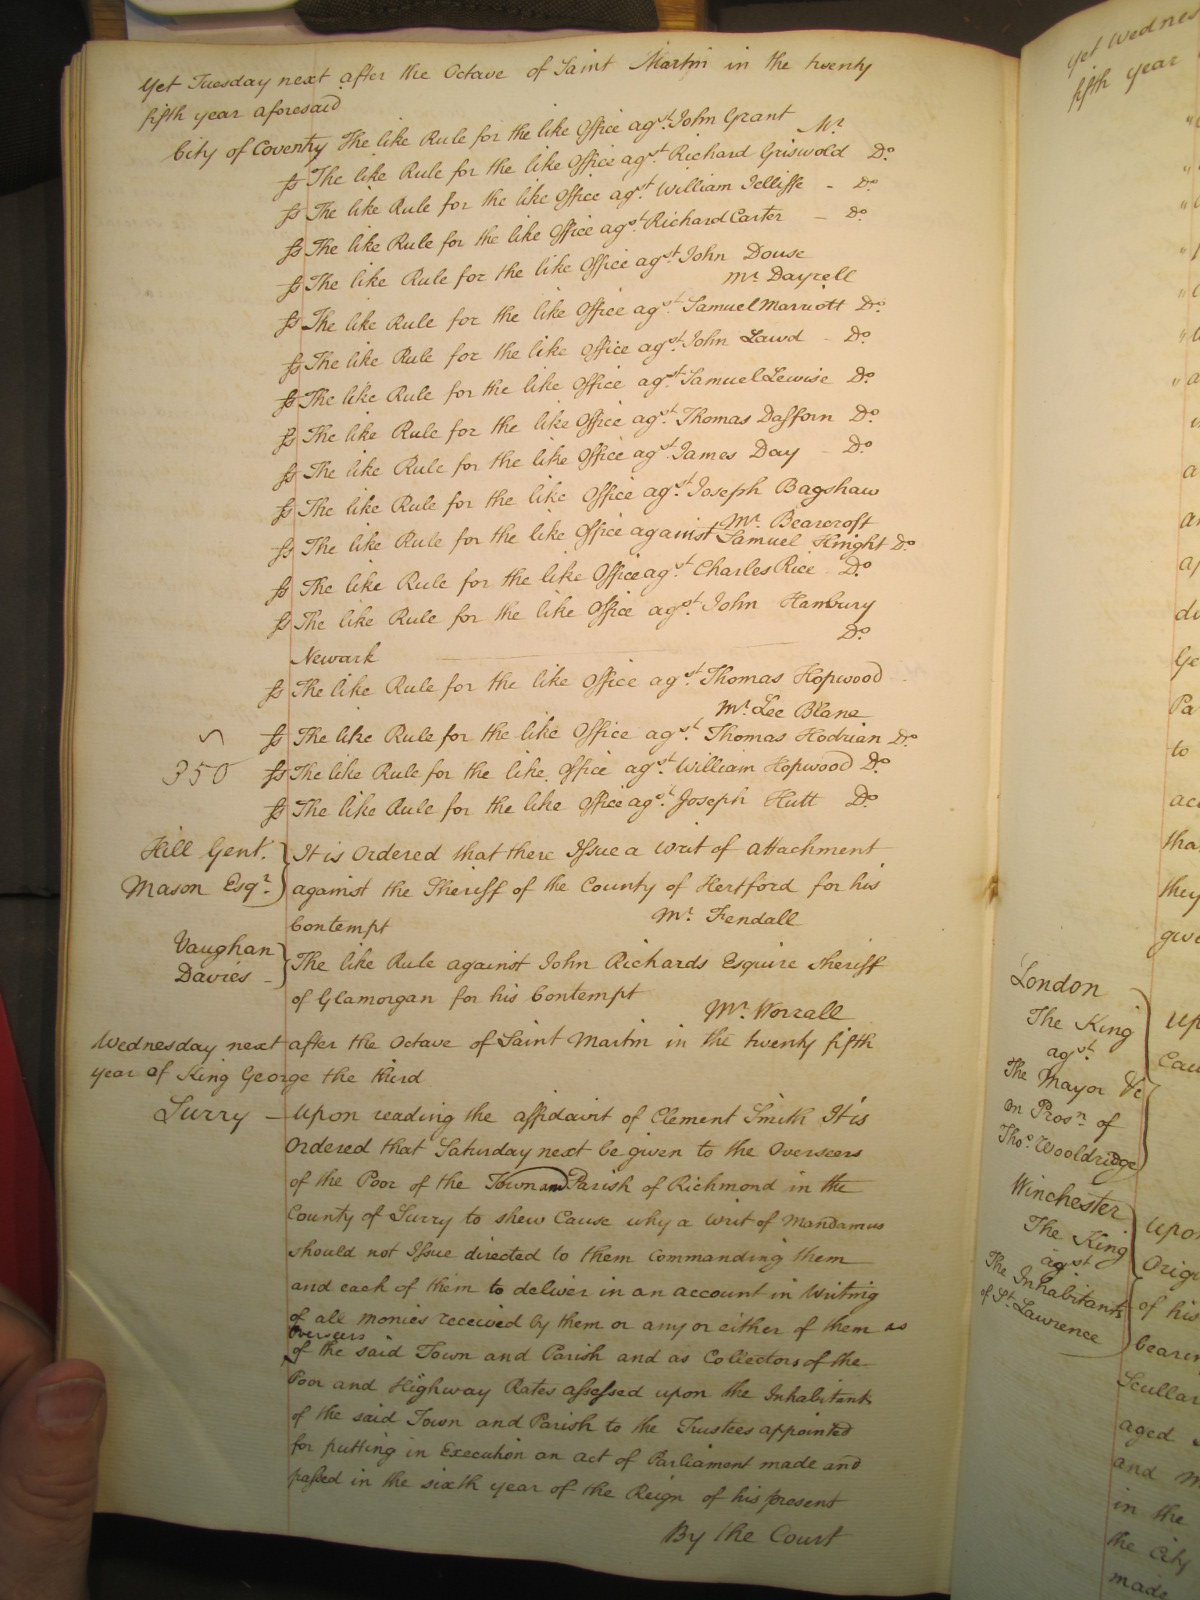 Yet Tuesday next after the Octave of Saint Martin in the twenty
fifth year aforesaid
City of Coventry The like Rule for the like Office agst. John Grant
Mr.
ss The like Rule for the like Office agst. Richard Griswold Do.
ss The like Rule for the like Office agst. William Jelliffe - Do.
ss The like Rule for the like Office agst. Richard Carter - Do.
ss The like Rule for the like Office agst. John Douse
Mr. Dayrell
ss The like Rule for the like Office agst. Samuel Marriott Do.
ss The like Rule for the like Office agst. John Lawd - Do.
ss The like Rule for the like Office agst. Samuel Lewise Do.
ss The like Rule for the like Office agst. Thomas Dafforn Do.
ss The like Rule for the like Office agst. James Day - Do.
ss The like Rule for the like Office agst. Joseph Bagshaw
Mr. Bearcroft
ss The like Rule for the like Office against Samuel Knight Do.
ss The like Rule for the like Office agst. Charles Rice Do.
ss The like Rule for the like Office agst. John Hambury
Do.
Newark
ss The like Rule for the like Office agst. Thomas Hopwood
Mr. Lee Blane
ss The like Rule for the like Office agst. Thomas Hodrian Do.
350 ss The like Rule for the like Office agst. William Hopwood Do.
ss The like Rule for the like Office agst. Joseph Hutt Do.
Hill Gent. } It is Ordered that there Issue a writ of attachment
Mason Esqr. } against the Sheriff of the County of Hertford for his
Contempt Mr. Fendall
Vaughan } The like Rule against John Richards Esquire Sheriff
Davies - } of Glamorgan for his Contempt
Mr. Worrall
Wednesday next after the Octave of Saint Martin in the twenty fifth
year of King George the third
Surry - Upon reading the affidavit of Clement Smith It is
Ordered that Saturday next be given to the Overseers
of the Poor of the Town and Parish of Richmond in the
County of Surry to shew Cause why a writ of Mandamus
should not Issue directed to them Commanding them
and each of them to deliver in an account in Writing
of all monies received by them or any or either of them as
Overseers
of the said Town and Parish and as Collectors of the
Poor and Highway Rates assessed upon the Inhabitants
of the said Town and Parish to the Trustees appointed
for putting in Execution an act of Parliament made and
passed in the sixth year of the Reign of his present
By the Court
Yet Wednes
fifth year
London
The King
agst.
The Mayor &c
in Prosn. of
Thos. Wooldridge
up
Cau
Winchester
The King
agst
The Inhabitants
of St. Lawrence
upon
Origi
of his
bearin
Scullar
aged
and M
in the
the City
made